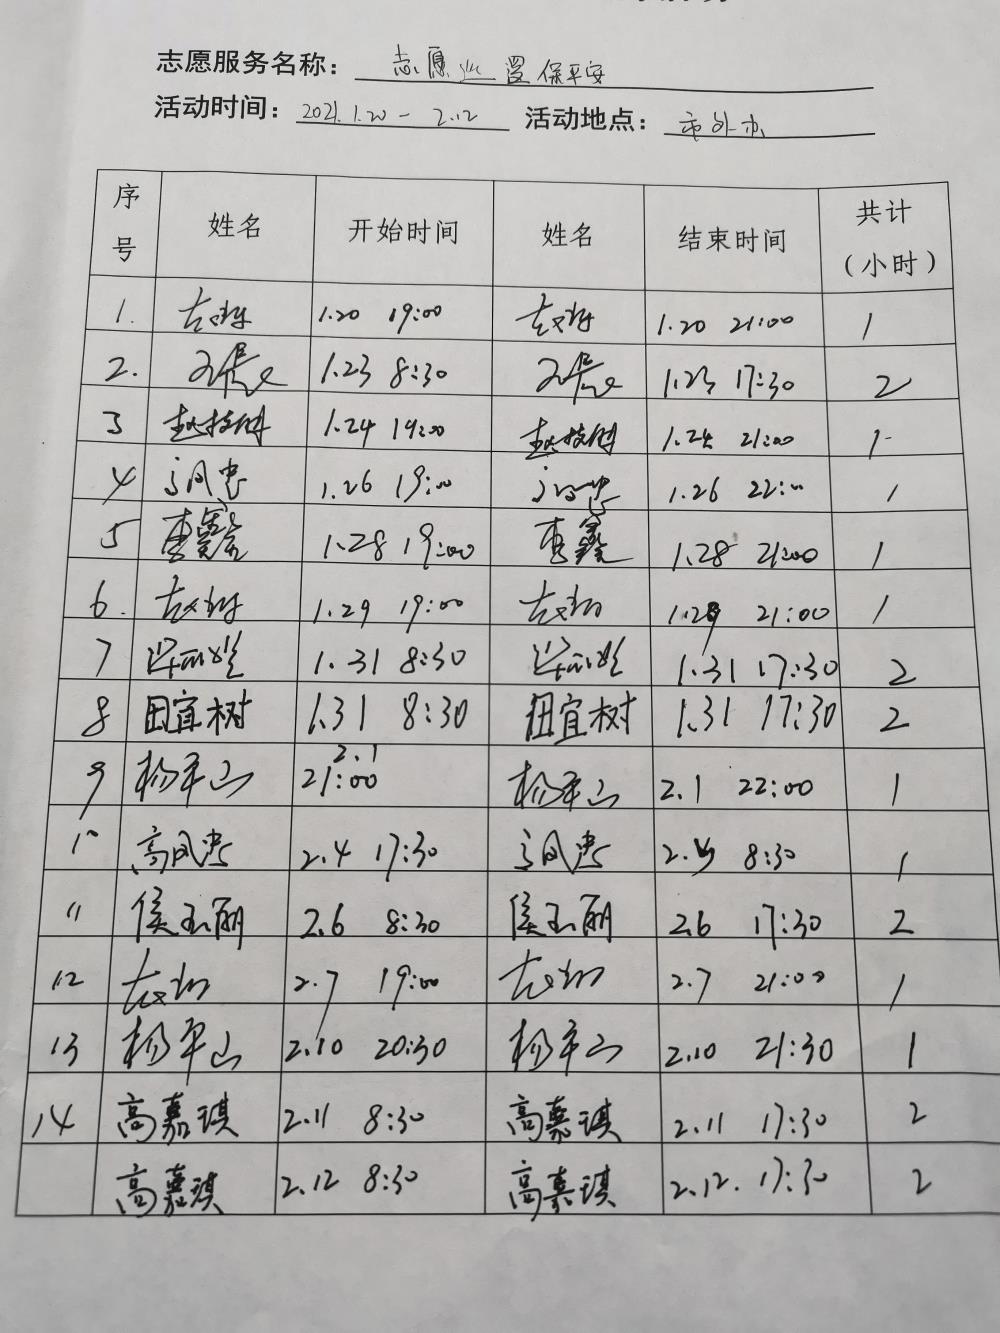 志愿服务名称： 志愿巡逻保平安
活动时间： 2021.1.20 - 2.12 活动地点： 市外办
序号 姓名 开始时间 姓名 结束时间 共计（小时）
1. 1.20 19:00 1.20 21:00 1
2. 1.23 8:30 1.23 17:30 2
3 1.24 19:00 1.24 21:00 1
4 高凤忠 1.26 19:00 高凤忠 1.26 22:00 1
5 1.28 19:00 1.28 21:00 1
6. 1.29 19:00 1.29 21:00 1
7 1.31 8:30 1.31 17:30 2
8 田宜树 1.31 8:30 田宜树 1.31 17:30 2
9 杨平山 2.1 21:00 杨平山 2.1 22:00 1
10 高凤忠 2.4 17:30 高凤忠 8:30 1
11 侯玉丽 2.6 8:30 侯玉丽 2.6 17:30 2
12 2.7 19:00 2.7 21:00 1
13 杨平山 2.10 20:30 杨平山 2.10 21:30 1
14 高嘉琪 2.11 8:30 高嘉琪 2.11 17:30 2
高嘉琪 2.12 8:30 高嘉琪 2.12. 17:30 2